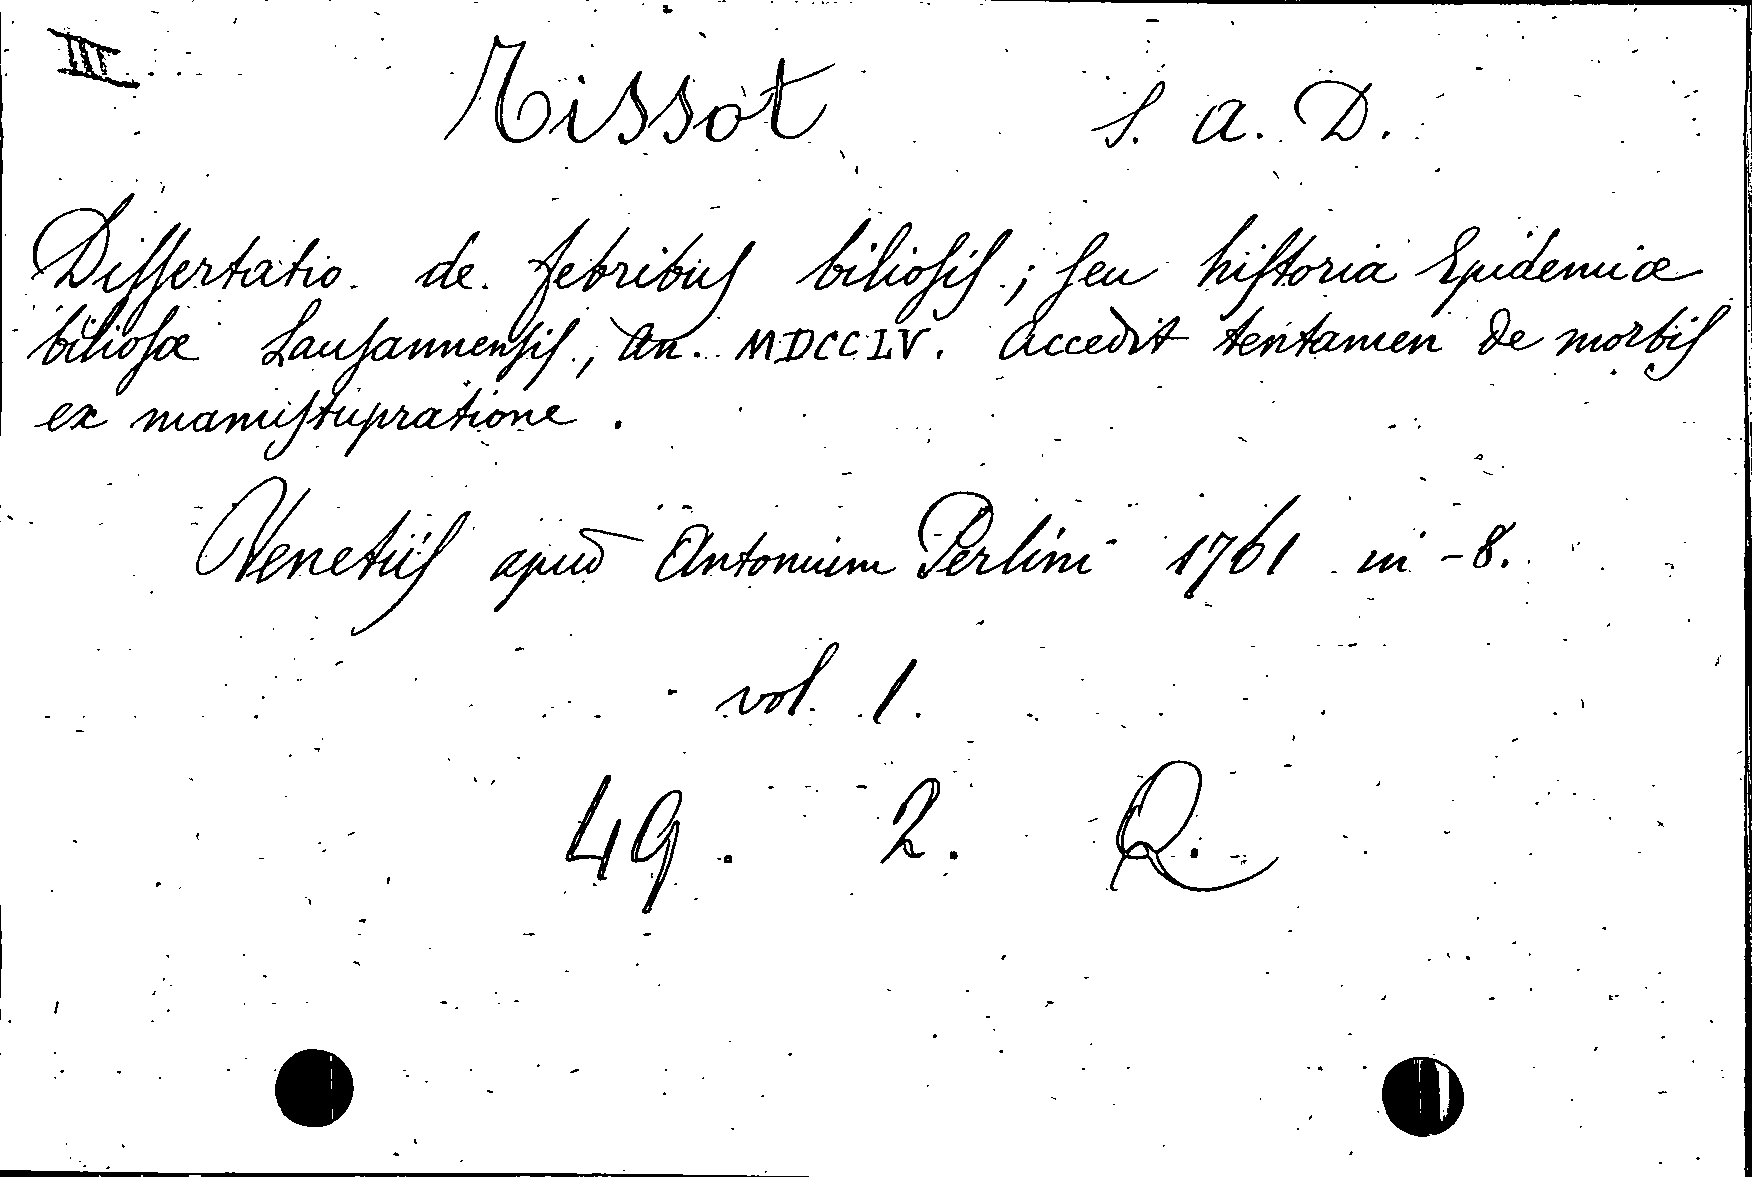 III
Tissot S. A. D.
Dissertatio de febribus biliosis; seu historia Epidemiæ
biliosæ Lausannensis, An. MDCCLV. Accedit tentamen de morbis
ex manustupratione.
Venetiis apud Antonium Perlini 1761 in-8.
vol. 1.
49. 2. Q.